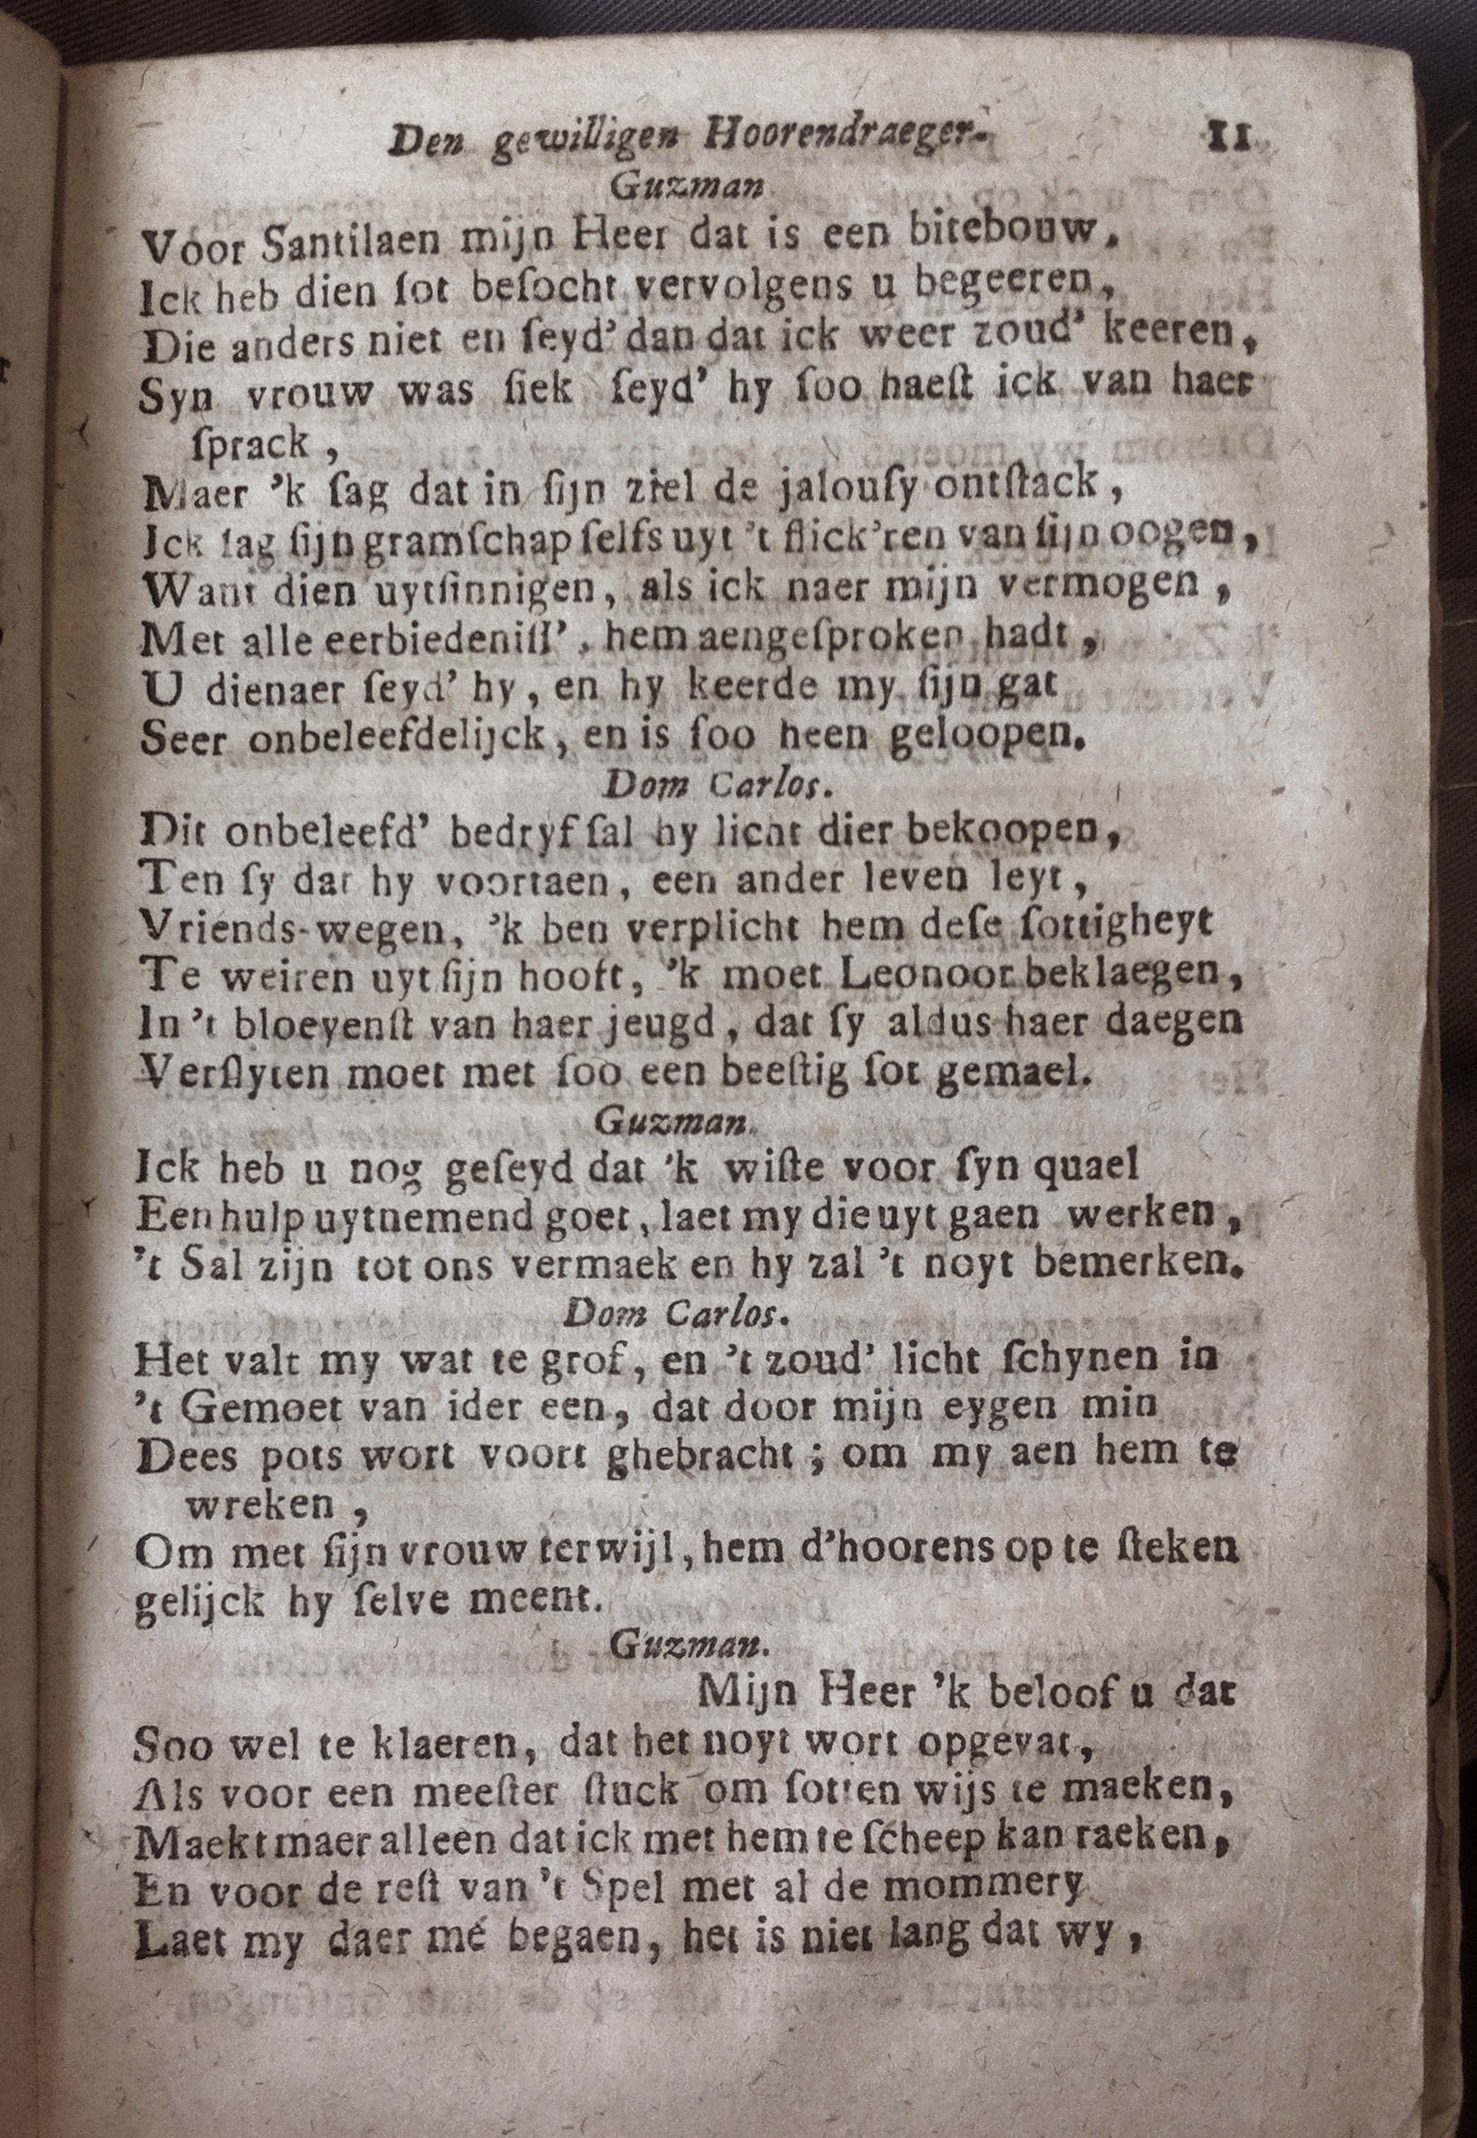 Den gewilligen Hoorendraeger. 11
Guzman
Voor Santilaen mijn Heer dat is een bitebouw.
Ick heb dien ſot beſocht vervolgens u begeeren,
Die anders niet en ſeyd' dan dat ick weer zoud' keeren,
Syn vrouw was ſiek ſeyd' hy ſoo haeſt ick van haer
ſprack,
Maer 'k ſag dat in ſijn ziel de jalouſy ontſtack,
Ick ſag ſijn gramſchap ſelfs uyt 't flick'ren van ſijn oogen,
Want dien uytſinnigen, als ick naer mijn vermogen,
Met alle eerbiedeniſſ', hem aengeſproken hadt,
U dienaer ſeyd' hy, en hy keerde my ſijn gat
Seer onbeleefdelijck, en is ſoo heen geloopen.
Dom Carlos.
Dit onbeleefd' bedryf ſal hy licht dier bekoopen,
Ten ſy dat hy voortaen, een ander leven leyt,
Vriends-wegen, 'k ben verplicht hem deſe ſottigheyt
Te weiren uyt ſijn hooft, 'k moet Leonoor beklaegen,
In 't bloeyenſt van haer jeugd, dat ſy aldus haer daegen
Verſlyten moet met ſoo een beeſtig ſot gemael.
Guzman.
Ick heb u nog geſeyd dat 'k wiſte voor ſyn quael
Een hulp uytnemend goet, laet my die uyt gaen werken,
't Sal zijn tot ons vermaek en hy zal 't noyt bemerken.
Dom Carlos.
Het valt my wat te grof, en 't zoud' licht ſchynen in
't Gemoet van ider een, dat door mijn eygen min
Dees pots wort voort ghebracht; om my aen hem te
wreken,
Om met ſijn vrouw terwijl, hem d'hoorens op te ſteken
gelijck hy ſelve meent.
Guzman.
Mijn Heer 'k beloof u dat
Soo wel te klaeren, dat het noyt wort opgevat,
Als voor een meeſter ſtuck om ſotten wijs te maeken,
Maekt maer alleen dat ick met hem te ſcheep kan raeken,
En voor de reſt van 't Spel met al de mommery
Laet my daer mé begaen, het is niet lang dat wy,